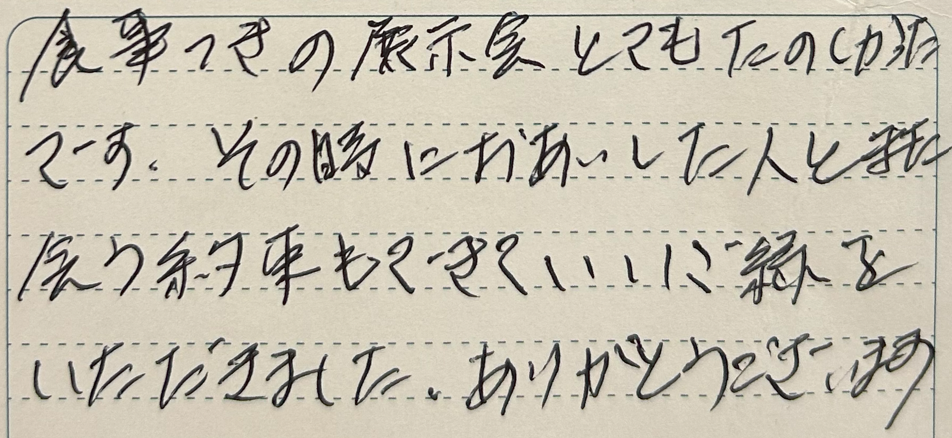 食事つきの展示会 とてもたのしかった
です。 その時におあいした人とまた
会う約束もできていいご縁を
いただきました。ありがとうございます